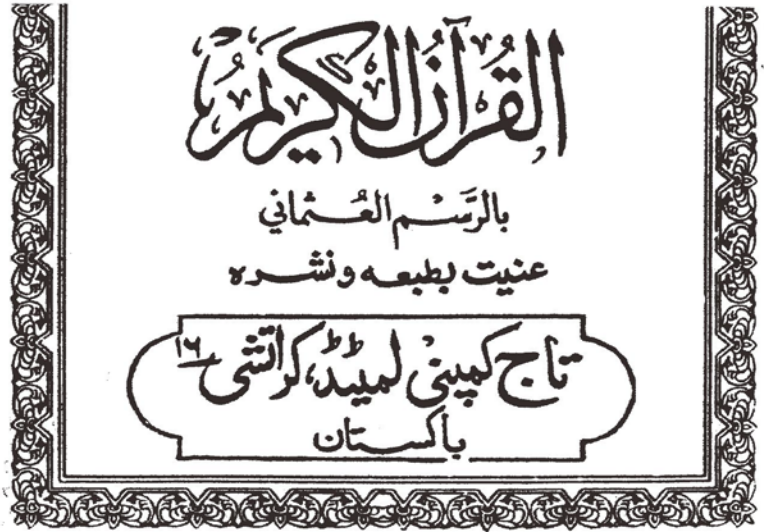 القُرآنُ الكَرِيمُ
بالرَّسْمِ العُثماني
عنيت بطبعه ونشره
تاج كمپنی لمیٹڈ، كراتشی ١٦
باكستان